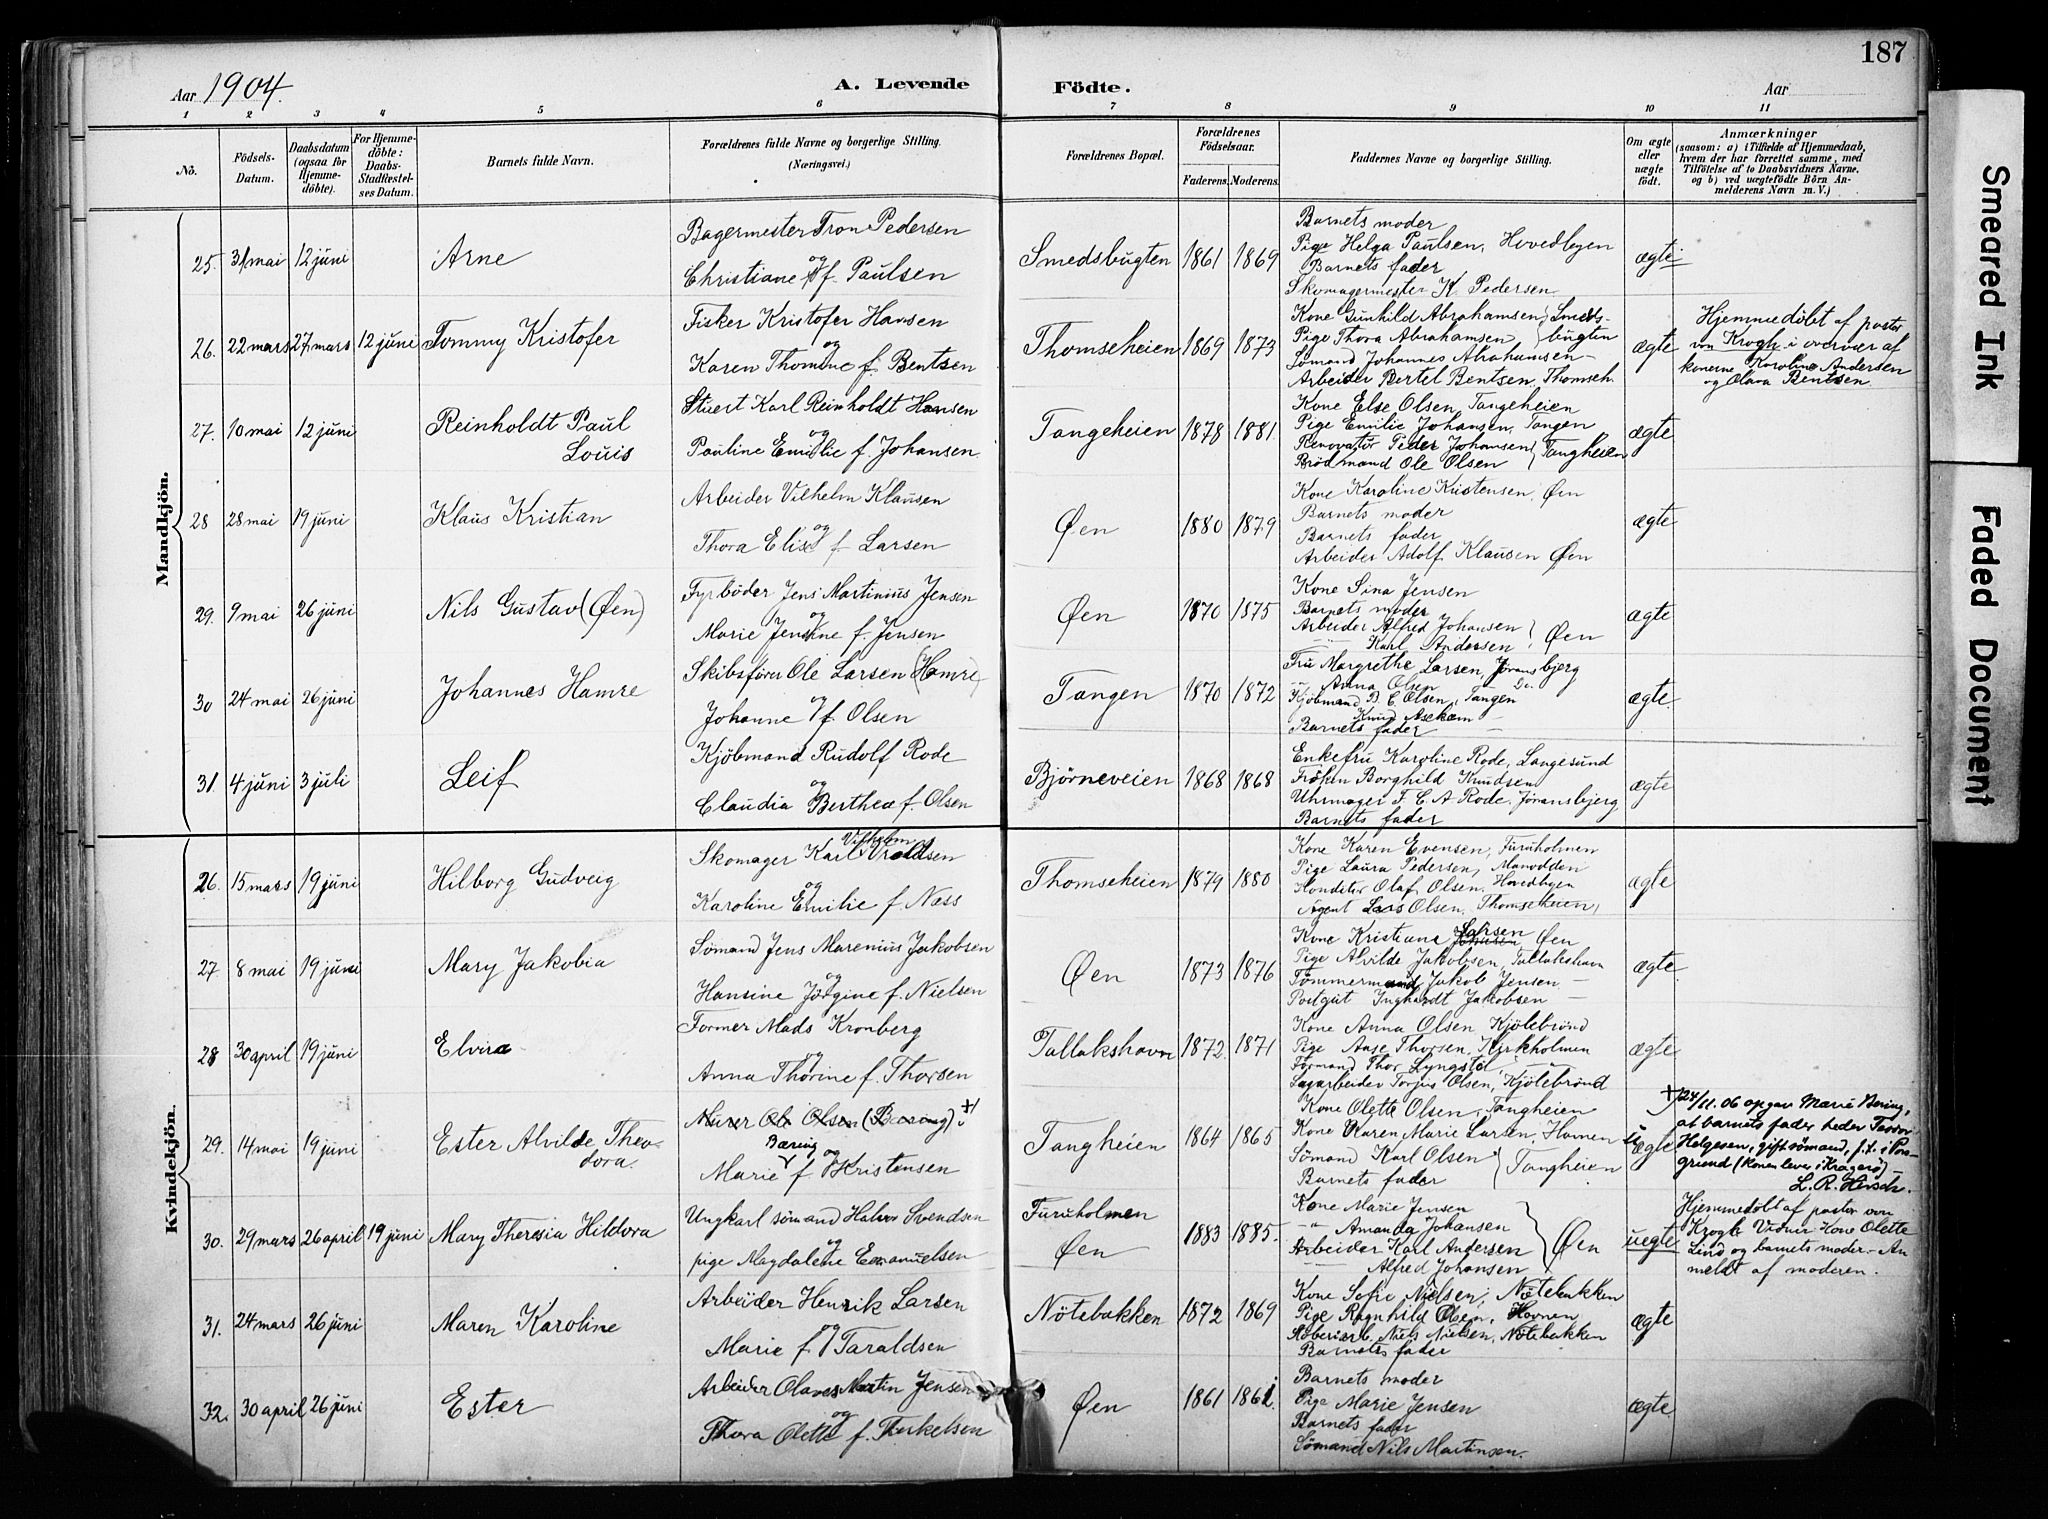 187
Aar 1904.
A. Levende Födte.
Aar
1 2 3 4 5 6 7 8 9 10 11
No.
Födsels-Datum.
Daabsdatum (ogsaa for Hjemme-döbte).
For Hjemme-döbte: Daabs-Stadfæstel-ses Datum.
Barnets fulde Navn.
Forældrenes fulde Navne og borgerlige Stilling. (Næringsvei.)
Forældrenes Bopæl.
Forældrenes Födselsaar.
Faderens. Moderens.
Faddernes Navne og borgerlige Stilling.
Om ægte eller uægte födt.
Anmærkninger
(saasom: a) i Tilfælde af Hjemmedaab, hvem der har forrettet samme, med Tilföielse af to Daabsvidners Navne, og b) ved uægtefödte Börn An-melderens Navn m. V.)
Mandkjön.
25. 31 mai 12 juni Arne
Bagermester Tron Pedersen
og
Christiane f. Paulsen
Smedsbugten 1861 1869
Barnets moder
Pige Helga Paulsen, Hovedbyen
Barnets fader
Skomagermester K. Pedersen
ægte
26. 22 mars 27 mars 12 juni Tommy Kristofer
Fisker Kristofer Hansen
og
Karen Thomine f. Bentsen
Thomseheien 1869 1873
Kone Gunhild Abrahamsen } Smeds-
Pige Thora Abrahamsen } bugten
Sømand Johannes Abrahamsen –
Arbeider Bertel Bentsen, Thomseh.
ægte
Hjemmedöbt af pastor
von Krogh i overvær af
konerne Karoline Andersen
og Olava Bentsen
27. 10 mai 12 juni Reinholdt Paul
Louis
Stuert Karl Reinholdt Hansen
og
Pauline Emilie f. Johansen
Tangeheien 1878 1881.
Kone Else Olsen, Tangeheien
Pige Emilie Johansen, Tangen
Renovatör Peder Johansen } Tangheien
Brödmand Ole Olsen
ægte
28 28 mai 19 juni Klaus Kristian
Arbeider Vilhelm Klausen
og
Thora Elise f. Larsen
Øen 1880 1879
Kone Karoline Kristensen, Øen
Barnets moder
Barnets fader
Arbeider Adolf Klausen Øen
ægte
29. 9 mai 26 juni Nils Gustav (Øen)
Fyrböder Jens Martinius Jensen
og
Marie Jensine f. Jensen
Øen 1870 1875
Kone Sina Jensen
Barnets moder
Arbeider Alfred Johansen } Øen
–"– Karl Andersen
ægte
30 24 mai 26 juni Johannes Hamre
Skibsfører Ole Larsen (Hamre)
og
Johanne f. Olsen
Tangen 1870 1872
Fru Margrethe Larsen, Jøransbjerg
–"– Anna Olsen Do.
Kjöbmand B. C. Olsen, Tangen
Knud –
Barnets fader
ægte
31. 4 juni 3 juli Leif
Kjöbmand Rudolf Rode
og
Claudia Berthea f. Olsen
Björneveien 1868 1868
Enkefru Karoline Rode, Langesund
Frøken Borghild Knudsen
Uhrmager F. C. A. Rode, Jøransbjerg
Barnets fader
ægte
Kvindekjön.
26. 15 mars 19 juni Hilborg Gudveig
Vilhelm
Skomager Karl Uroldsen
og
Karoline Emilie f. Næss
Thomseheien 1879 1880
Kone Karen Evensen, Furuholmen
Pige Laura Pedersen,
Konditor Olaf Olsen, Hovedbyen
Agent Lars Olsen, Thomseheien
ægte
27. 8 mai 19 juni Mary Jakobia
Sömand Jens Marenius Jakobsen
og
Hansine Jörgine f. Nielsen
Øen 1873 1876
Larsen
Kone Kristiane Johnsen Øen
Pige Alvilde Jakobsen, Tallakshavn
Tømmermand Jakob Jensen –
Postgut Inghardt Jakobsen –
ægte
28 30 april 19 juni Elvira
Former Mads Kronberg
og
Anna Thorine f. Thorsen
Tallakshavn 1872. 1871
Kone Anna Olsen, Kjölebrönd
Pige Aase Thorsen, Kirkholmen
Formand Thor Lyngstöl "
Sagarbeider Torjus Olsen, Kjölebrönd
ægte
29. 14 mai 19 juni Ester Alvilde Theo-
dora.
Murer Ole Olsen (Bæring) +)
Bæring og
Marie f. Kristensen
Tangheien 1864 1865
Kone Olette Olsen, Tangheien
Kone Karen Marie Larsen, Havnen
Sömand Karl Olsen } Tangheien
Barnets fader
uægte
+) 24/11.06 opgav Marie Bering,
at barnets fader heder Taavor
Helgesen, gift sömand, p.t. i Pors-
grund (konen lever i Kragerö) –
L. R. Hirsch.
30. 29 mars 26 april 19 juni Mary Theresia Hildora
Ungkarl sömand Halvor Svendsen
og
pige Magdalene Emanuelsen
Furuholmen
Øen
1883 1885.
Kone Marie Jensen
–"– Amanda Johansen
Arbeider Karl Andersen } Øen
–"– Alfred Johansen
uegte
Hjemmedöbt af pastor von
Krogh Vidner Kone Olette
Lind og barnets moder – An
meldt af moderen.
31. 24 mars 26 juni Maren Karoline
Arbeider Henrik Larsen
og
Marie f. Taraldsen
Nötebakken 1872 1869
Kone Sofie Nielsen, Nötebakken
Pige Ragnhild Olsen, Havnen
Niels Nielsen, Nötebakken
Barnets fader
ægte
32. 30 april 26 juni Ester
Arbeider Olaves Martin Jensen
og
Thora Olette f. Terkelsen
Øen 1861 1861.
Barnets moder
Pige Marie Jensen
Barnets fader
Sömand Nils Martinsen.
ægte
Smeared Ink
Faded Document